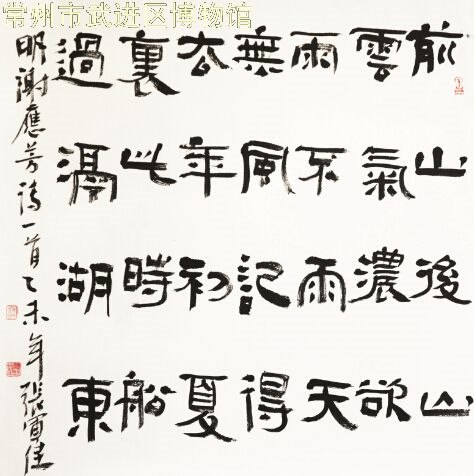 常州市武进区博物馆
前山後山
雲氣濃欲
雨不雨天
無風記得
去年初夏
裏此時船
過滆湖東
明謝應芳詩一首乙未年張